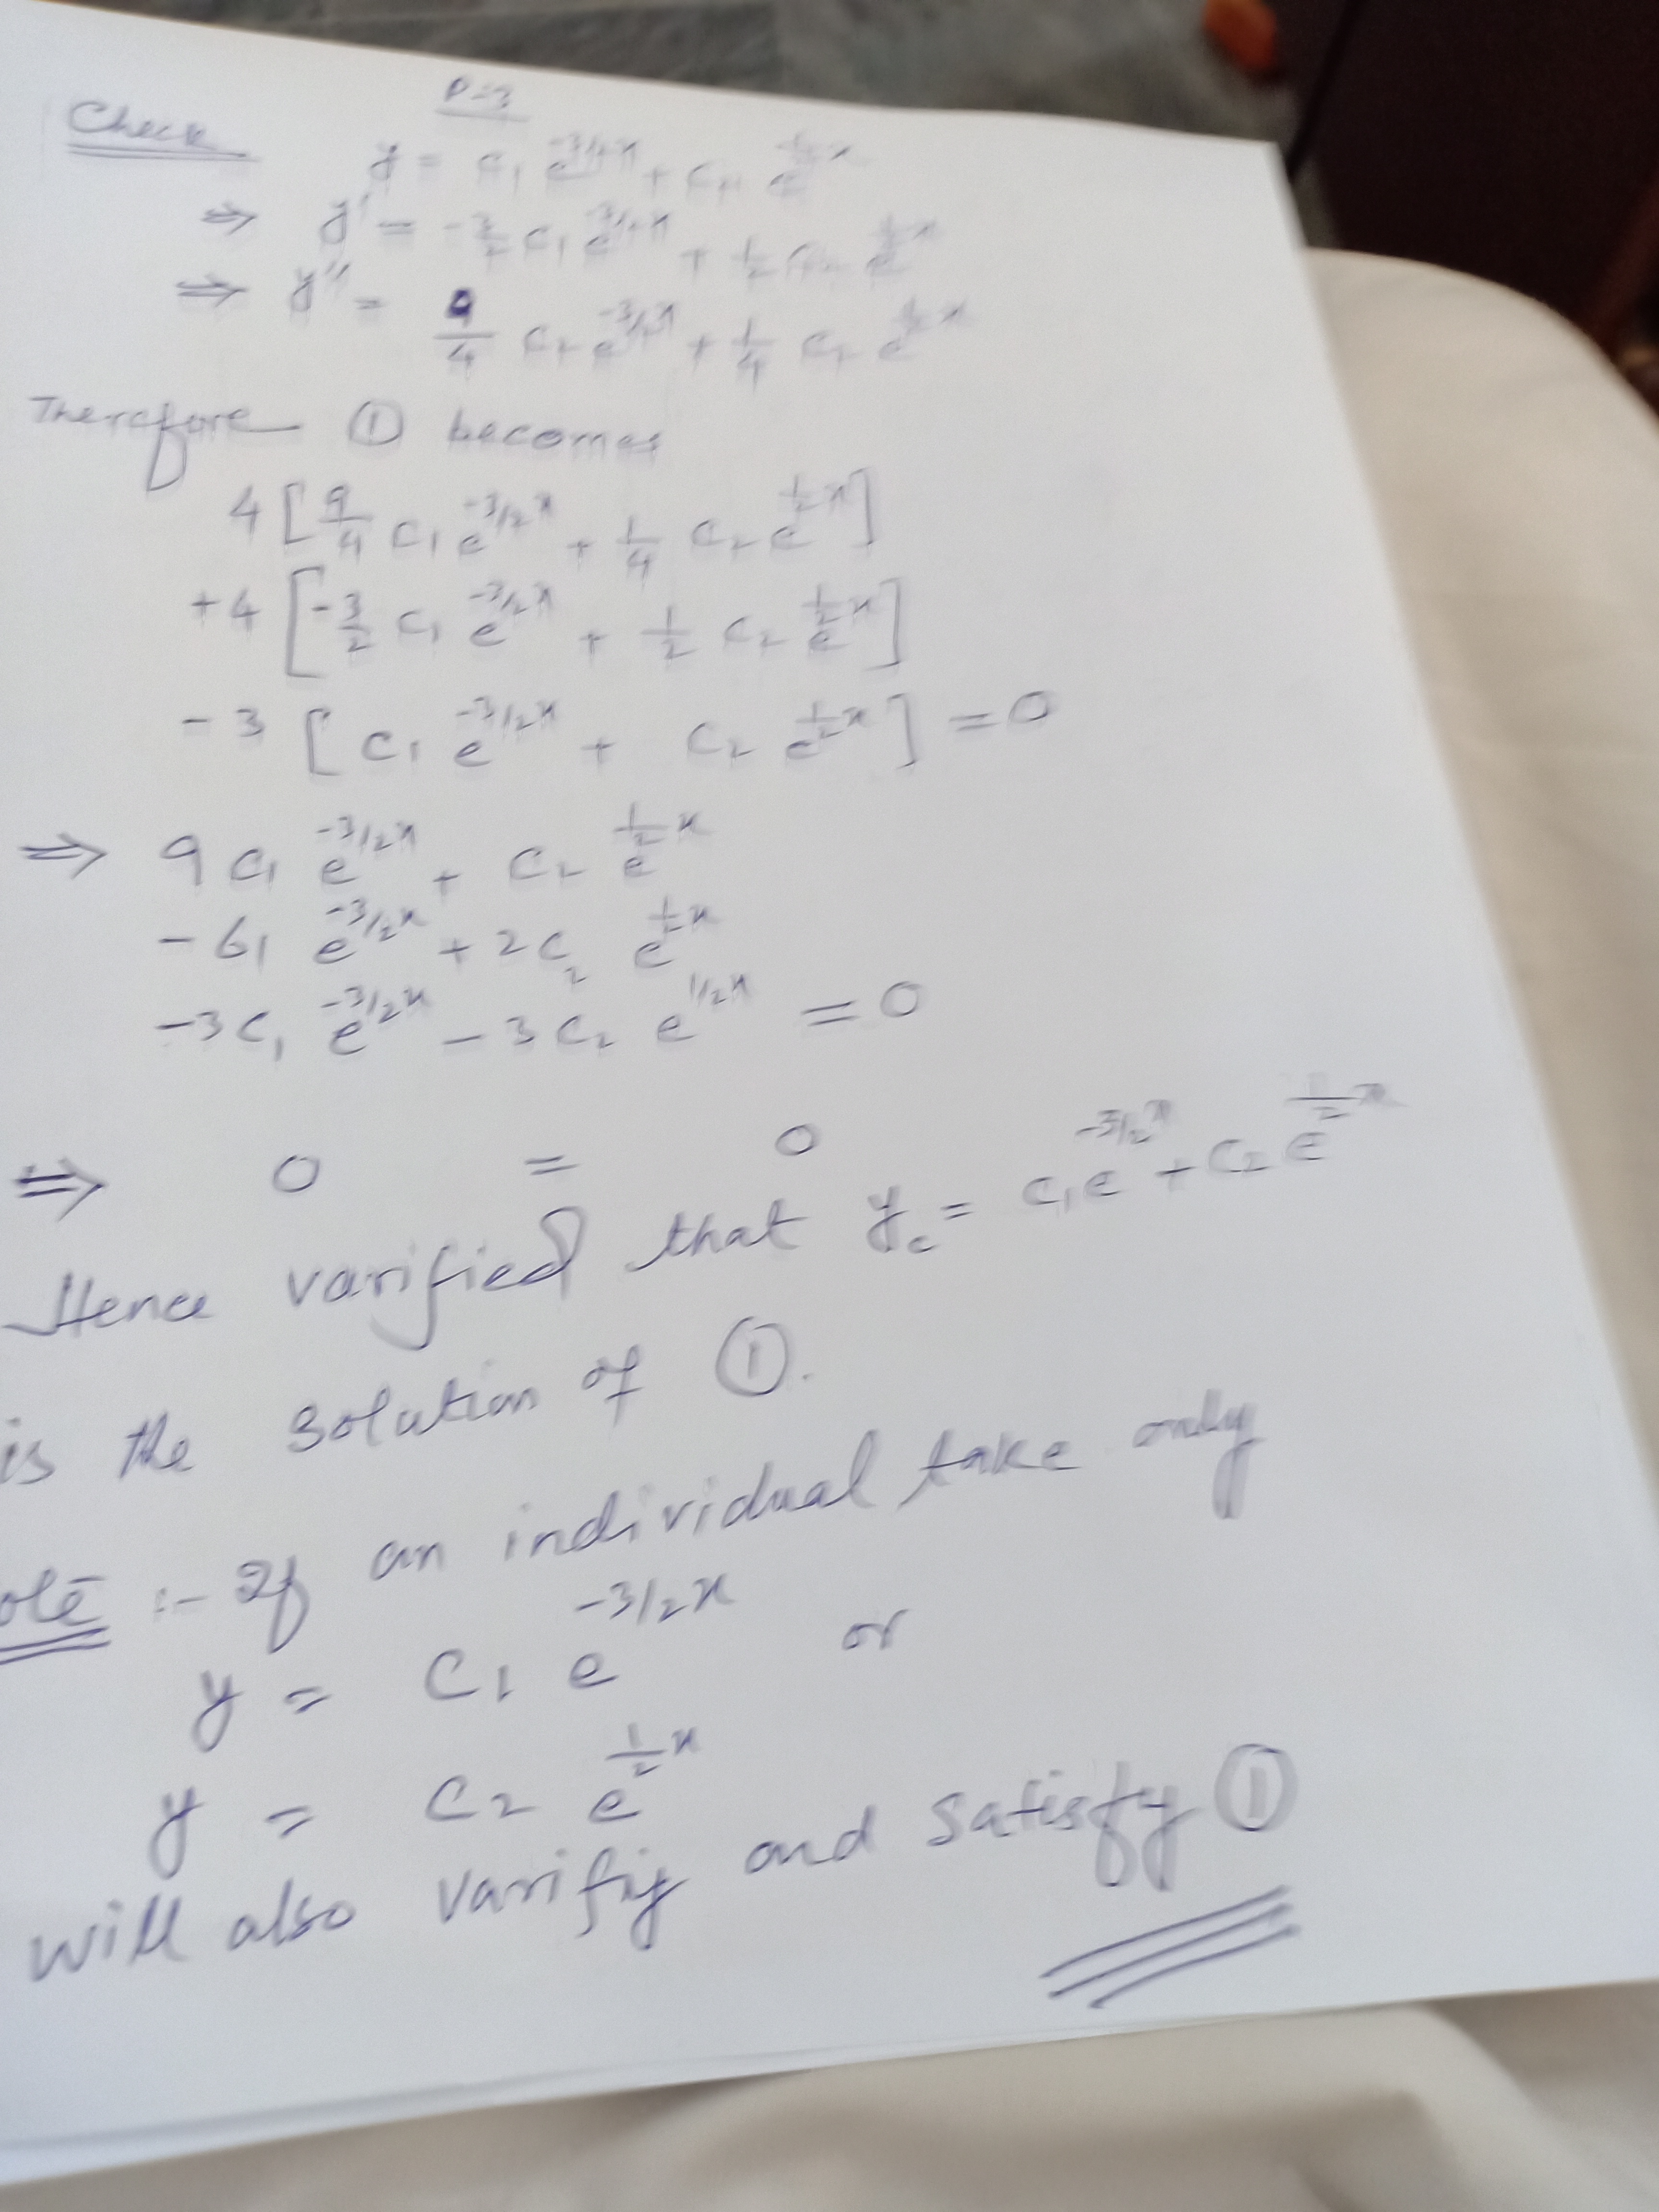 P-3
Check y = c₁ e^{-3/2x} + c₂ e^{1/2x}
⇒ y' = -3/2 c₁ e^{-3/2x} + 1/2 c₂ e^{1/2x}
⇒ y'' = 9/4 c₁ e^{-3/2x} + 1/4 c₂ e^{1/2x}
Therefore ① becomes
4 [9/4 c₁ e^{-3/2x} + 1/4 c₂ e^{1/2x}]
+4 [-3/2 c₁ e^{-3/2x} + 1/2 c₂ e^{1/2x}]
-3 [c₁ e^{-3/2x} + c₂ e^{1/2x}] = 0
⇒ 9 c₁ e^{-3/2x} + c₂ e^{1/2x}
-6₁ e^{-3/2x} + 2c₂ e^{1/2x}
-3c₁ e^{-3/2x} - 3c₂ e^{1/2x} = 0
⇒ 0 = 0
Hence varified that y_c = c₁e^{-3/2x} + c₂e^{1/2x}
is the solution of ①.
ote :- If an individual take only
y = c₁ e^{-3/2x} or
y = c₂ e^{1/2x}
will also varifiy and satisfy ①